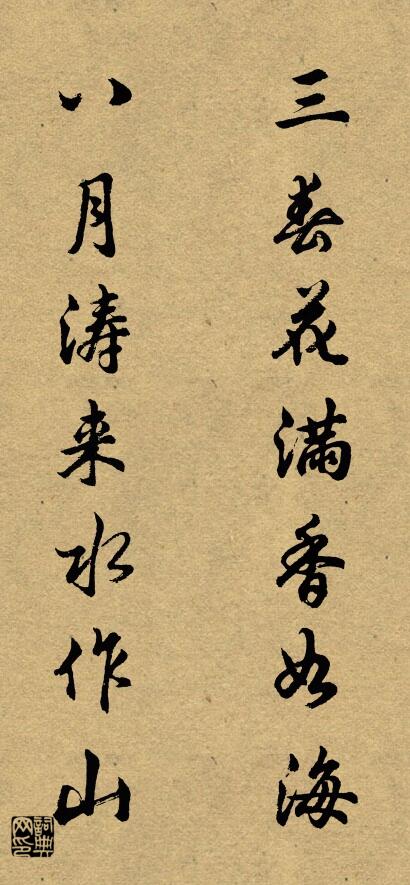 三春花满香如海
八月涛来水作山
詞典网印